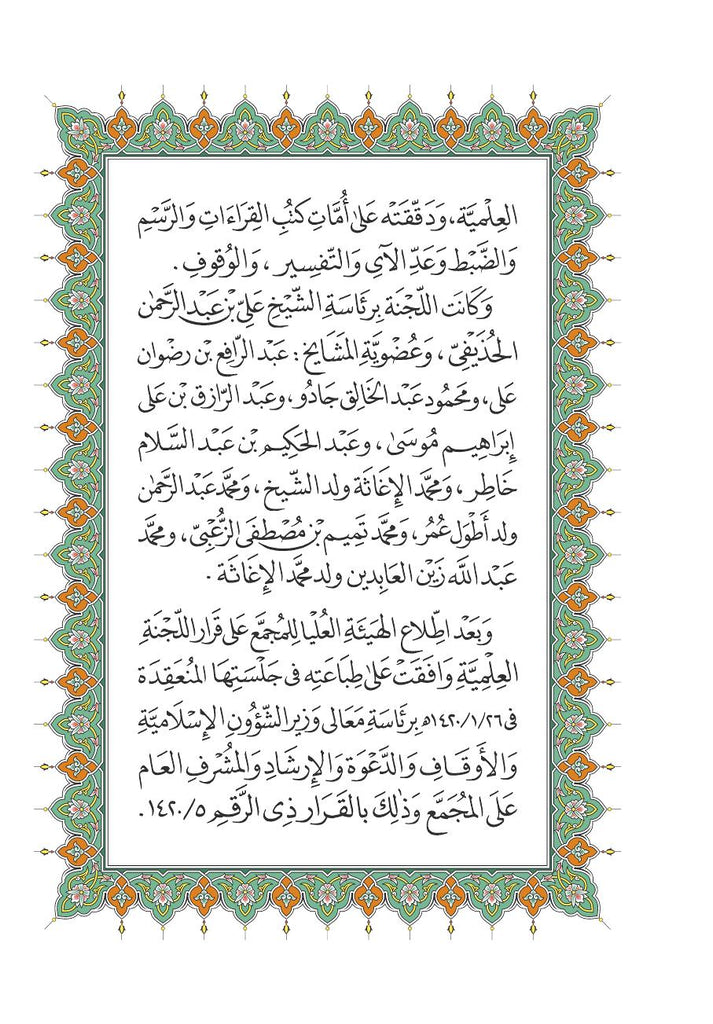 العِلْمِيَّة، وَدَقَّقَتْه عَلىٰ أُمَّاتِ كتُبِ القِرَاءَاتِ وَالرَّسْمِ
وَالضَّبْطِ وَعَدِّ الآيِ وَالتَّفْسِيرِ ، وَالوُقُوفِ .
وَكَانَت اللّجْنَة بِرِئَاسَةِ الشَّيْخ عَلِيّ بْن عَبْد الرَّحْمٰن
الحُذَيفِيّ ، وَعُضْوِيَّةِ المَشَايخ : عَبْد الرَّافِع بْن رِضْوَان
عَلى، وَمَحمُود عَبْد الخَالِق جَادُو، وَعَبْد الرَّازِق بْن عَلى
إِبْرَاهِيم مُوسَىٰ ، وَعَبْد الحَكِيم بْن عَبْد السَّلام
خَاطِر ، وَمحمَّد الإغَاثَة ولد الشَّيخ ، وَمحمَّد عَبْد الرَّحْمٰن
ولد أَطْول عُمُر، وَمحمَّد تَمِيم بْن مُصْطَفَى الزُّعْبِيّ، وَمحمَّد
عَبْد اللَّه زَيْن العَابِدين ولد محمَّد الإغَاثَة .
وَبَعْد اطِّلاع الهَيْئَةِ العُلْيَا لِلمُجمَّع عَلى قَرَار اللّجْنَةِ
العِلمِيَّةِ وَافَقَتْ عَلىٰ طِبَاعَتِه فى جَلْسَتِهَا المُنعَقِدَة
فى ١٤٢٠/١/٢٦هـ بِرئَاسَةِ مَعَالى وَزِير الشُّؤُون الإسْلَاميَّةِ
وَالأَوقَافِ وَالدَّعْوَة وَالإرشَادِ وَالمُشْرِفِ العَام
عَلَى المُجَمَّع وَذٰلِكَ بالقَرَار ذِى الرَّقَم ١٤٢٠/٥ .